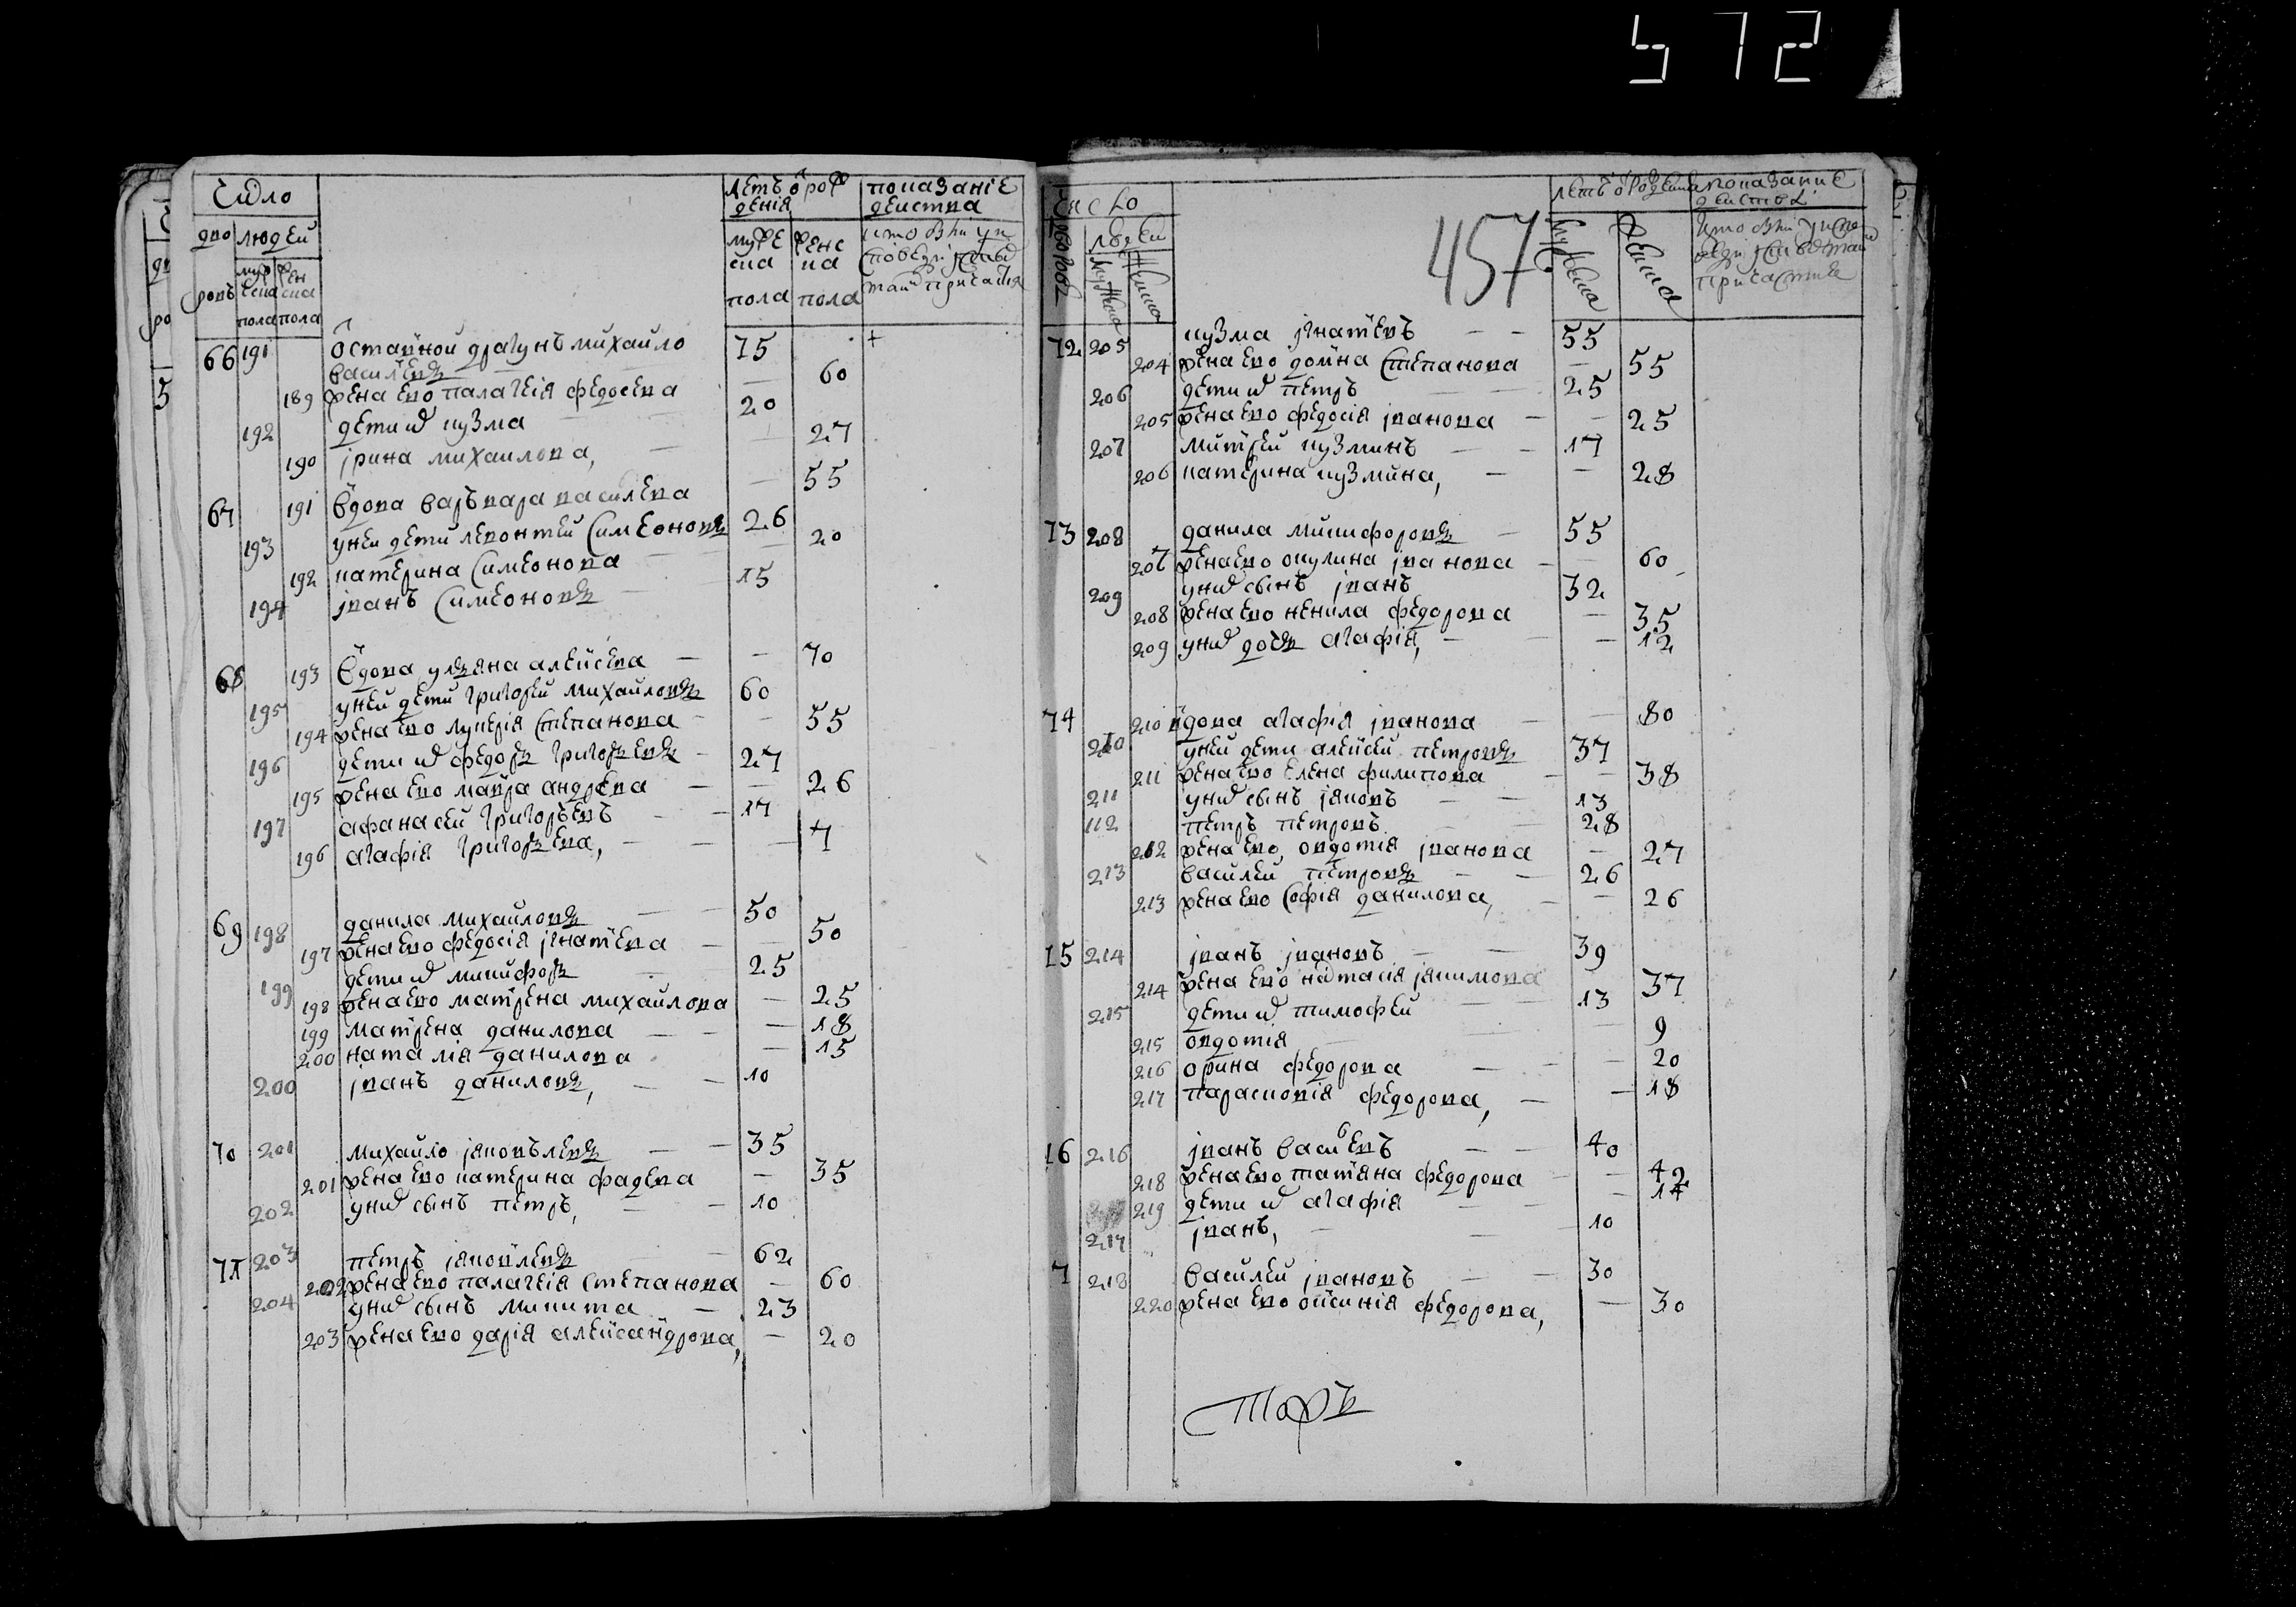 572
число
лѣтъ ѿ рож
дения
показаніе
действа
дво
ровъ
людей
муж
еска
пола
жен
ска
пола
муже
ска
пола
женс
ка
пола
66 191 Отставной драгунъ михайло 75 +
василевъ
189 жена ево палагея федосева — 60
192 дети их кузма — 20
190 ирина михаилова, — — 27
67 191 вдова варъвара василева — 55
193 у неи дети левонтеи симеоновъ 26
192 катерина симеонова — — 20
194 іванъ симеоновъ — 15
68 193 вдова ульяна алексева — — 70
195 у неи дети григореи михаиловъ 60
194 жена ево лукерія степанова — — 55
196 дети их федоръ григоревъ — 27
195 жена ево мавра андрева — — 26
197 афанасеи григоръевъ — — 17
196 агафія григоръева, — — — 7
69 198 данила михаиловъ — — 50
197 жена ево федосія игнатева — — 50
199 дети их никифоръ — 25
198 жена ево матрена михаилова — 25
199 матрена данилова — — — 18
200 наталія данилова — 15
200 іванъ даниловъ, — — 10
70 201 михайло яковълевъ — — 35
201 жена ево катерина фадева — 35
202 у них сынъ петръ, — — 10
71 203 петръ яковлевъ — 62
202 жена ево палагея степанова — 60
204 у них сынъ никита — 23
203 жена ево дарія александрова, — 20
число
дворовъ
людеи
мужеска
женска
лѣтъ ѿ рождения
показание
действа
457
мужеска
женска
72 205 кузма игнатевъ — — 55
204 жена ево домна степанова — 55
206 дети их петръ — — 25
205 жена ево федосія іванова — — 25
207 митреи кузминъ — — 17
206 катерина кузмина, — — 28
73 208 данила никифоровъ — 55
207 жена ево окулина іванова — — 60
209 у них сынъ іванъ 32
208 жена ево ненила федорова — 35
209 у них дочь агафія, — — — 12
74 210 вдова агафія іванова — — 80
210 у неи дети алексеи петровъ 37
211 жена ево елена филипова — — 38
211 у них сынъ яковъ — — 13
112 петръ петровъ 28
212 жена ево овдотія іванова — 27
213 василеи петровъ — — 26
213 жена ево софія данилова, — — 26
15 214 іванъ івановъ — — 39
214 жена ево настасія якимова 37
215 дети их тимофеи — — 13
215 овдотія — — 9
216 орина федорова — — — 20
217 парасковія федорова, — — 18
16 216 іванъ васильевъ — — 40
218 жена ево татяна федорова — — 42
219 дети их агафія — — — 14
217 іванъ, — — 10
7 218 василеи івановъ — — 30
220 жена ево оксинія федорова, — 30